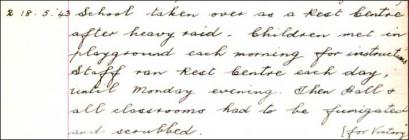 2 18.5.43 School taken over as a Rest Centre
after heavy raid - Children met in
playground each morning for instructions
Staff ran Rest Centre each day,
until Monday evening. Then Hall &
all classrooms had to be fumigated
and scrubbed. [for Victory